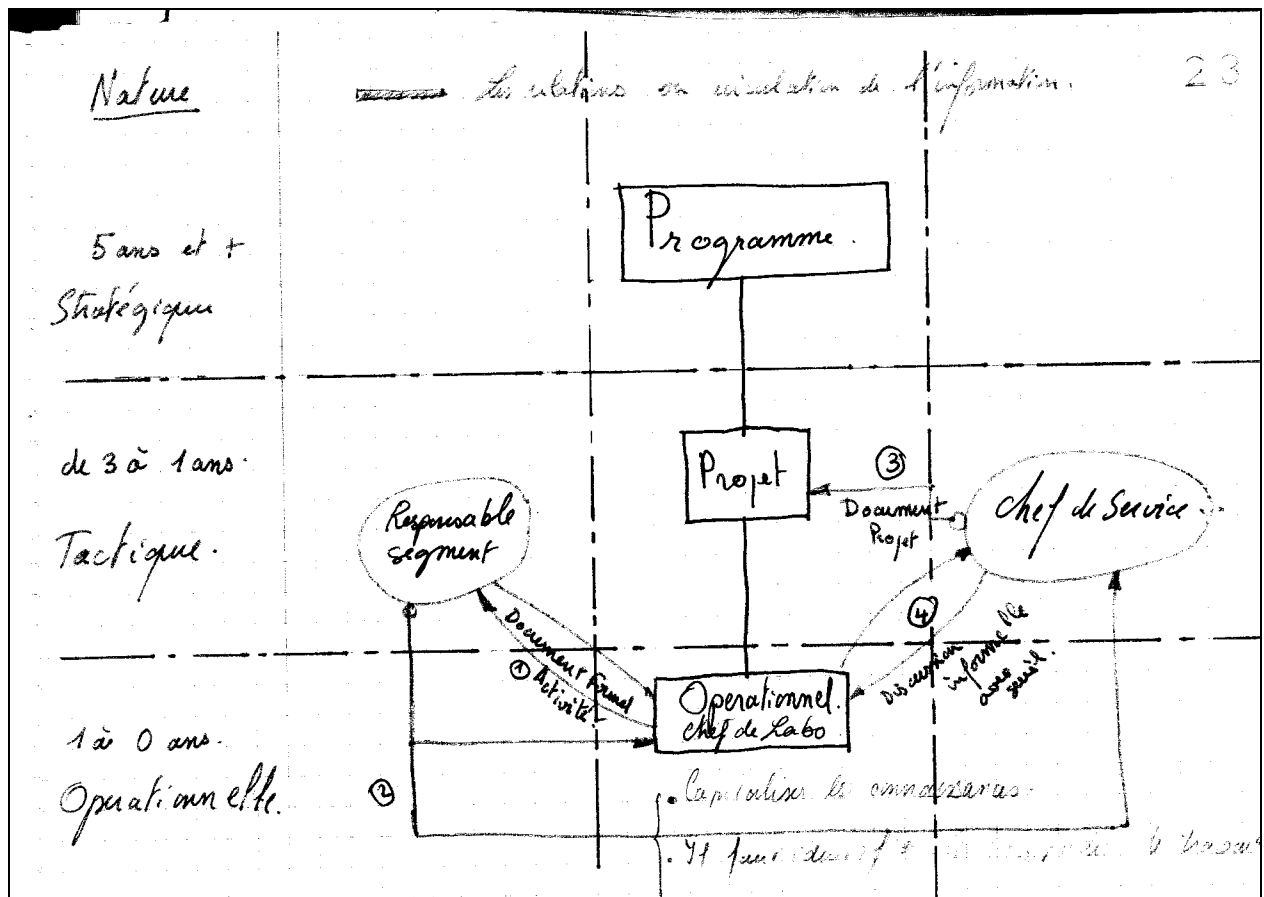 Nature
Les relations ou circulation de l'information.
23
Programme.
5 ans et +
Stratégique
de 3 à 1 ans.
Tactique.
Responsable
segment
Projet
③
Document
Projet
Chef de Service..
④
Discussion
informelle
avec
seuil.
Document Formel
① Activité.
Operationnel.
Chef de Labo
1 à 0 ans.
Operationnelle.
②
• Capitaliser les connaissances.
• Il